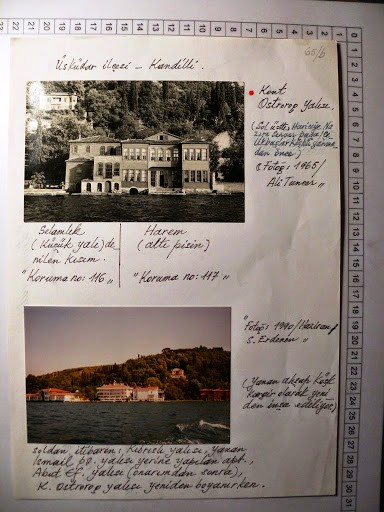 65/6
Üsküdar ilçesi – Kandilli.
• Kont
Ostrorog Yalısı.
(Sol üstte, Hariciye Na
zırı Server Paşa/
köşkü yanma
dan önce)
(Fotoğ: 1965/
Ali Tuncer"
Selamlık
(Küçük yalı) de
nilen kısım.
"Koruma no: 116"
Harem
(altı pisin)
"Koruma no: 117"
"Fotoğ: 1990/Haziran/
S. Erdenen"
(Yanan ahşap köşk
kargir olarak yeni
den inşa ediliyor.)
Soldan itibaren: Kıbrıslı yalısı, yanan
İsmail pş. yalısı yerine yapılan apt.,
Abut Ef. yalısı (onarımdan sonra),
K. Ostrorog yalısı yeniden boyanırken.
0 1 2 3 4 5 6 7 8 9 10 11 12 13 14 15 16 17
1 2 3 4 5 6 7 8 9 10 11 12 13 14 15 16 17 18 19 20 21 22 23 24 25 26 27 28 29 30 31